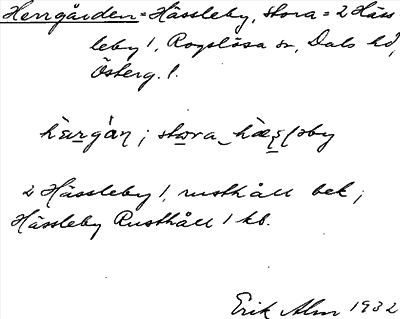 Herrgården = Hässleby, stora = 2 Häss
leby 1, Rogslösa sn, Dals hd,
Österg. l.
hærgån ; stora hæslǝby
2 Hässleby 1, rusthåll bek ;
Hässleby Rusthåll 1 kb.
Erik Alm 1932